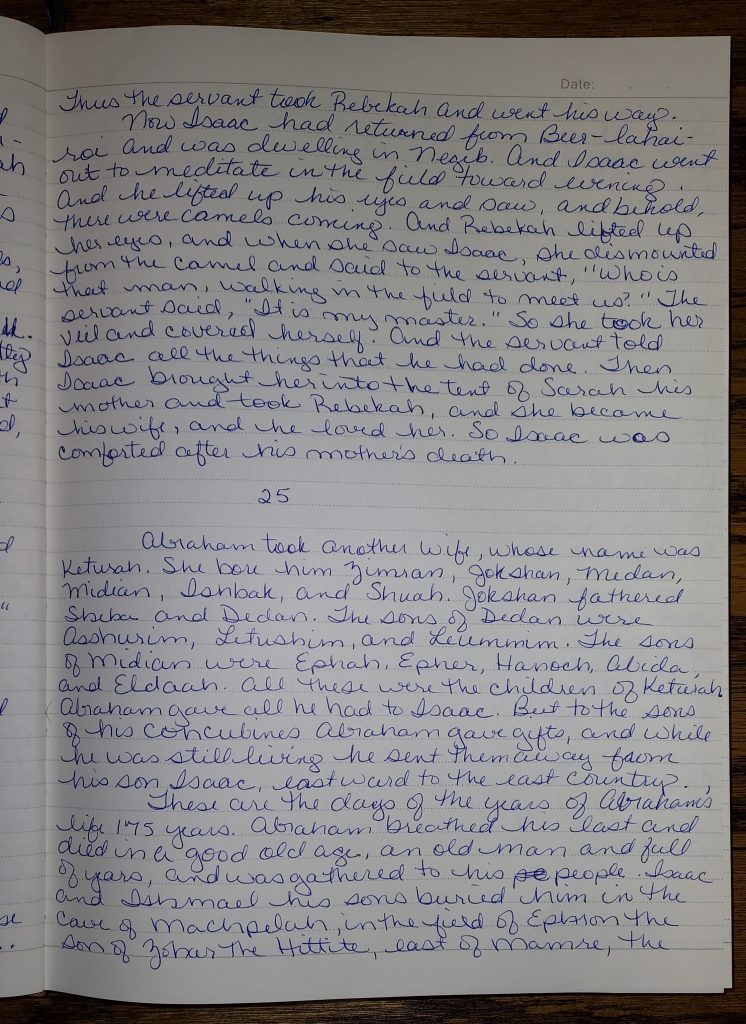 Date:
Thus the servant took Rebekah and went his way.
Now Isaac had returned from Beer-lahai-
roi and was dwelling in Negeb. And Isaac went
out to meditate in the field toward evening.
And he lifted up his eyes and saw, and behold,
there were camels coming. And Rebekah lifted up
her eyes, and when she saw Isaac, she dismounted
from the camel and said to the servant, "Who is
that man, walking in the field to meet us?" The
servant said, "It is my master." So she took her
veil and covered herself. And the servant told
Isaac all the things that he had done. Then
Isaac brought her into the tent of Sarah his
mother and took Rebekah, and she became
his wife, and he loved her. So Isaac was
comforted after his mother's death.
25
Abraham took another wife, whose name was
Keturah. She bore him Zimran, Jokshan, Medan,
Midian, Ishbak, and Shuah. Jokshan fathered
Sheba and Dedan. The sons of Dedan were
Asshurim, Letushim, and Leummim. The sons
of Midian were Ephah, Epher, Hanoch, Abida,
and Eldaah. All these were the children of Keturah
Abraham gave all he had to Isaac. But to the sons
of his concubines Abraham gave gifts, and while
he was still living he sent them away from
his son Isaac, eastward to the east country.
These are the days of the years of Abraham's
life 175 years. Abraham breathed his last and
died in a good old age, an old man and full
of years, and was gathered to his people. Isaac
and Ishmael his sons buried him in the
Cave of Machpelah, in the field of Ephron the
son of Zohar the Hittite, east of Mamre, the